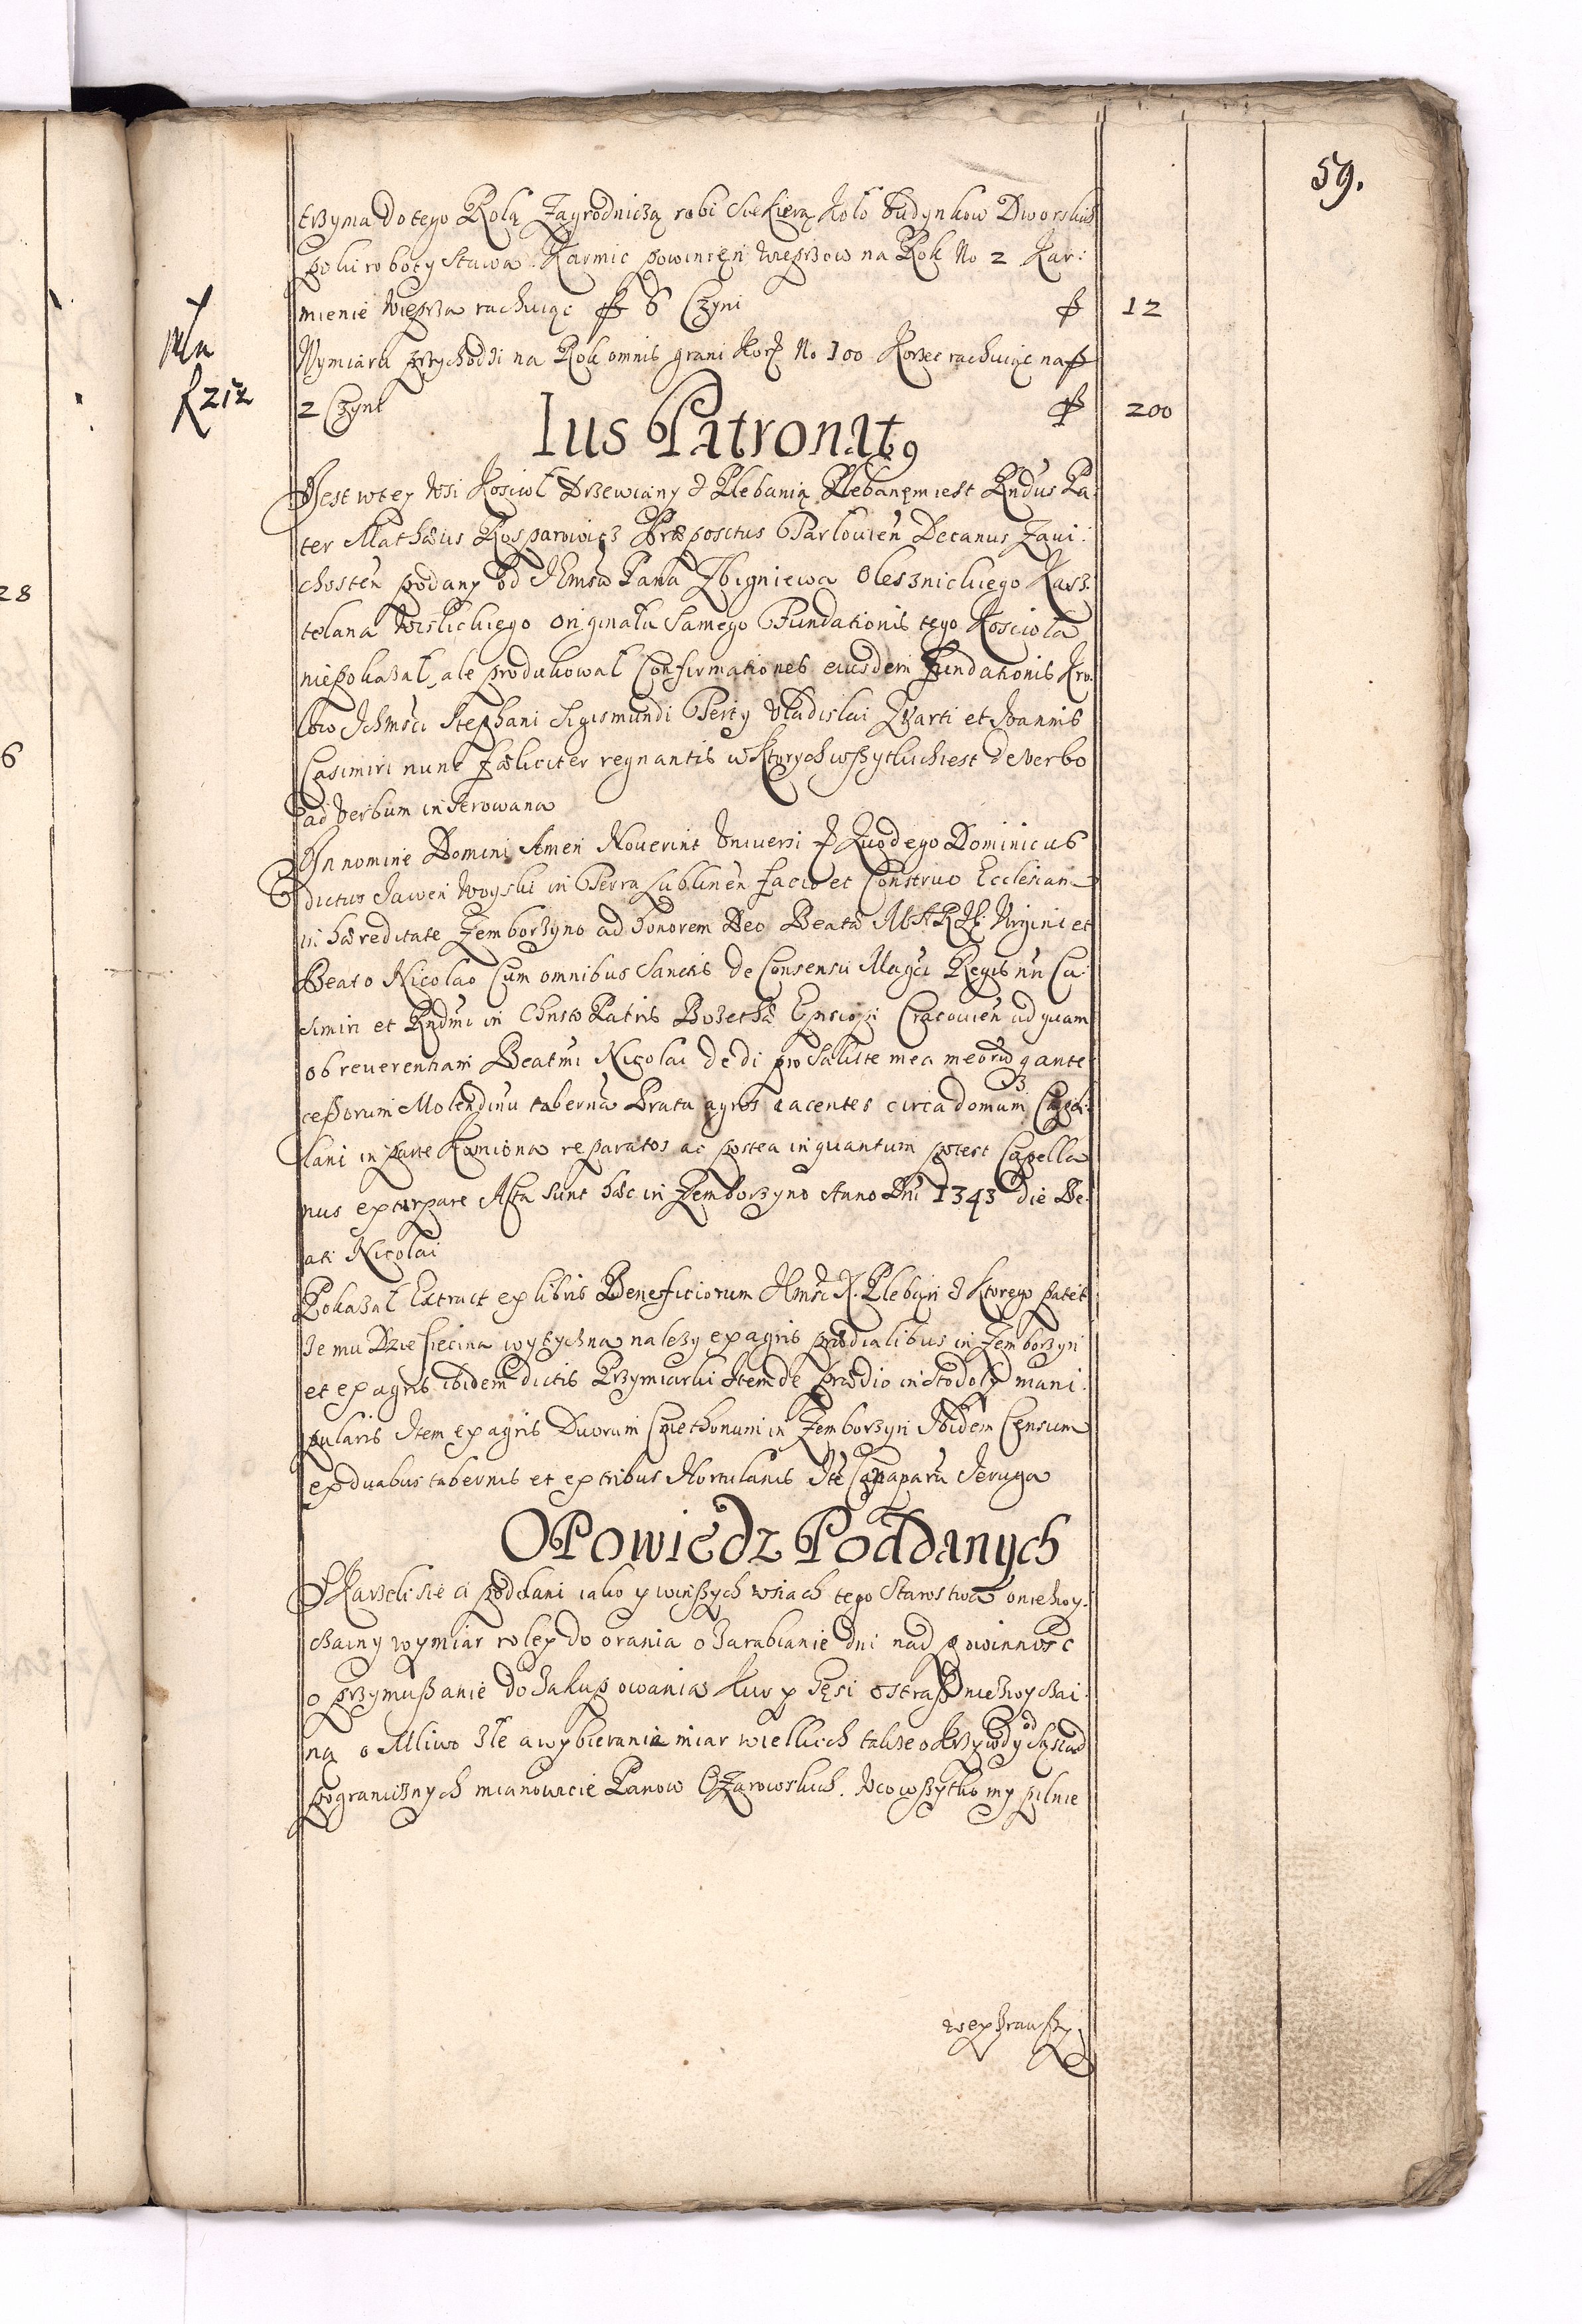 59.
trzyma do tego Rolą Zagrodniczą robi Siekierą Koło Budynkow Dworskich
poki roboty Stawa. Karmic powinien wieprzow na Rok No 2 Kar:
mienie wieprza rachuiąc f 6 Czyni f 12
Wymiaru przychodzi na Rok omnis grani Korcy No 100 Korzec rachuiąc na f
2 Czyni f 200
f 212
Ius Patronat9
Jest wtey Wsi Kosciol Drzewiany z Plebanią Plebanem iest Rndus Pa:
ter Mathæus Præpositus Decanus Zavi:
chosten podany od JEmśći Pana Zbigniewa Olesznickiego Kasz:
telana Wislickiego originału Samego Fundationis tego Kosciola
niepokazal, ale produkowal Confirmationes eiusdem Fundationis Kro:
low Ichmśći Stephani Sigismundi Tertÿ Vladislai Qvarti et Joannis
Casimiri nunc fæliciter regnantis w Ktorych wszytkich iest de verbo
ad verbum inserowana
In nomine Domini Amen Noverint Vniversi Quod ego Dominicus
dictus Woyski in Terra Lublinen facio et Construo Ecclesiam
in hæreditate Zemborzyno ad honorem Deo Beatæ MARIÆ Virgini et
Beato Nicolao Cum omnibus Sanctis de Consensu Magci Regis nri Ca:
simiri et Rndmi in Christo Patris Bozethæ Episcopi Cracovien ad quam
ob reverentiam Beatmi Nicolai dedi pro Salute mea meorūq ante
cessorum Molendinū tabernā Prata agros iacentes circa domum Capel:
lani in parte Kamiona reparatos ac postea in quantum potest Capella
nus extirpare Acta Sunt hæc in Zemborzyno Anno Dni 1343 die Be:
ati Nicolai
Pokazal Extract ex libris Beneficiorum Jmśći X. Pleban z Ktorego patet
ze mu Dziesięcina wytyczna nalezy ex agris prædialibus in Zemborzyn
et ex agris ibidem dictis Przymiarki Item de prædio in Stodoly mani:
pularis Item ex agris Duorum Cmethonum in Zemborzyn Ibidem Censum
ex duabus tabernis et ex tribus Hortulanis Jeruga
OPowiedz Poddanych
SKarzeli się ci poddani iako y winszych wsiach tego Starostwa o niezwy:
czainy wymiar roley do orania o zarabianie dni nad powinność
o przymuszanie do zakupowania Kur y Gęsi o straż niezwyczai:
ną o Mliwo złe a wybieranie miar wielkich także o Krzywdy od Sąsiad
pogranicznych mianowicie Panow Ożarowskich. Wco wszytko my pilnie